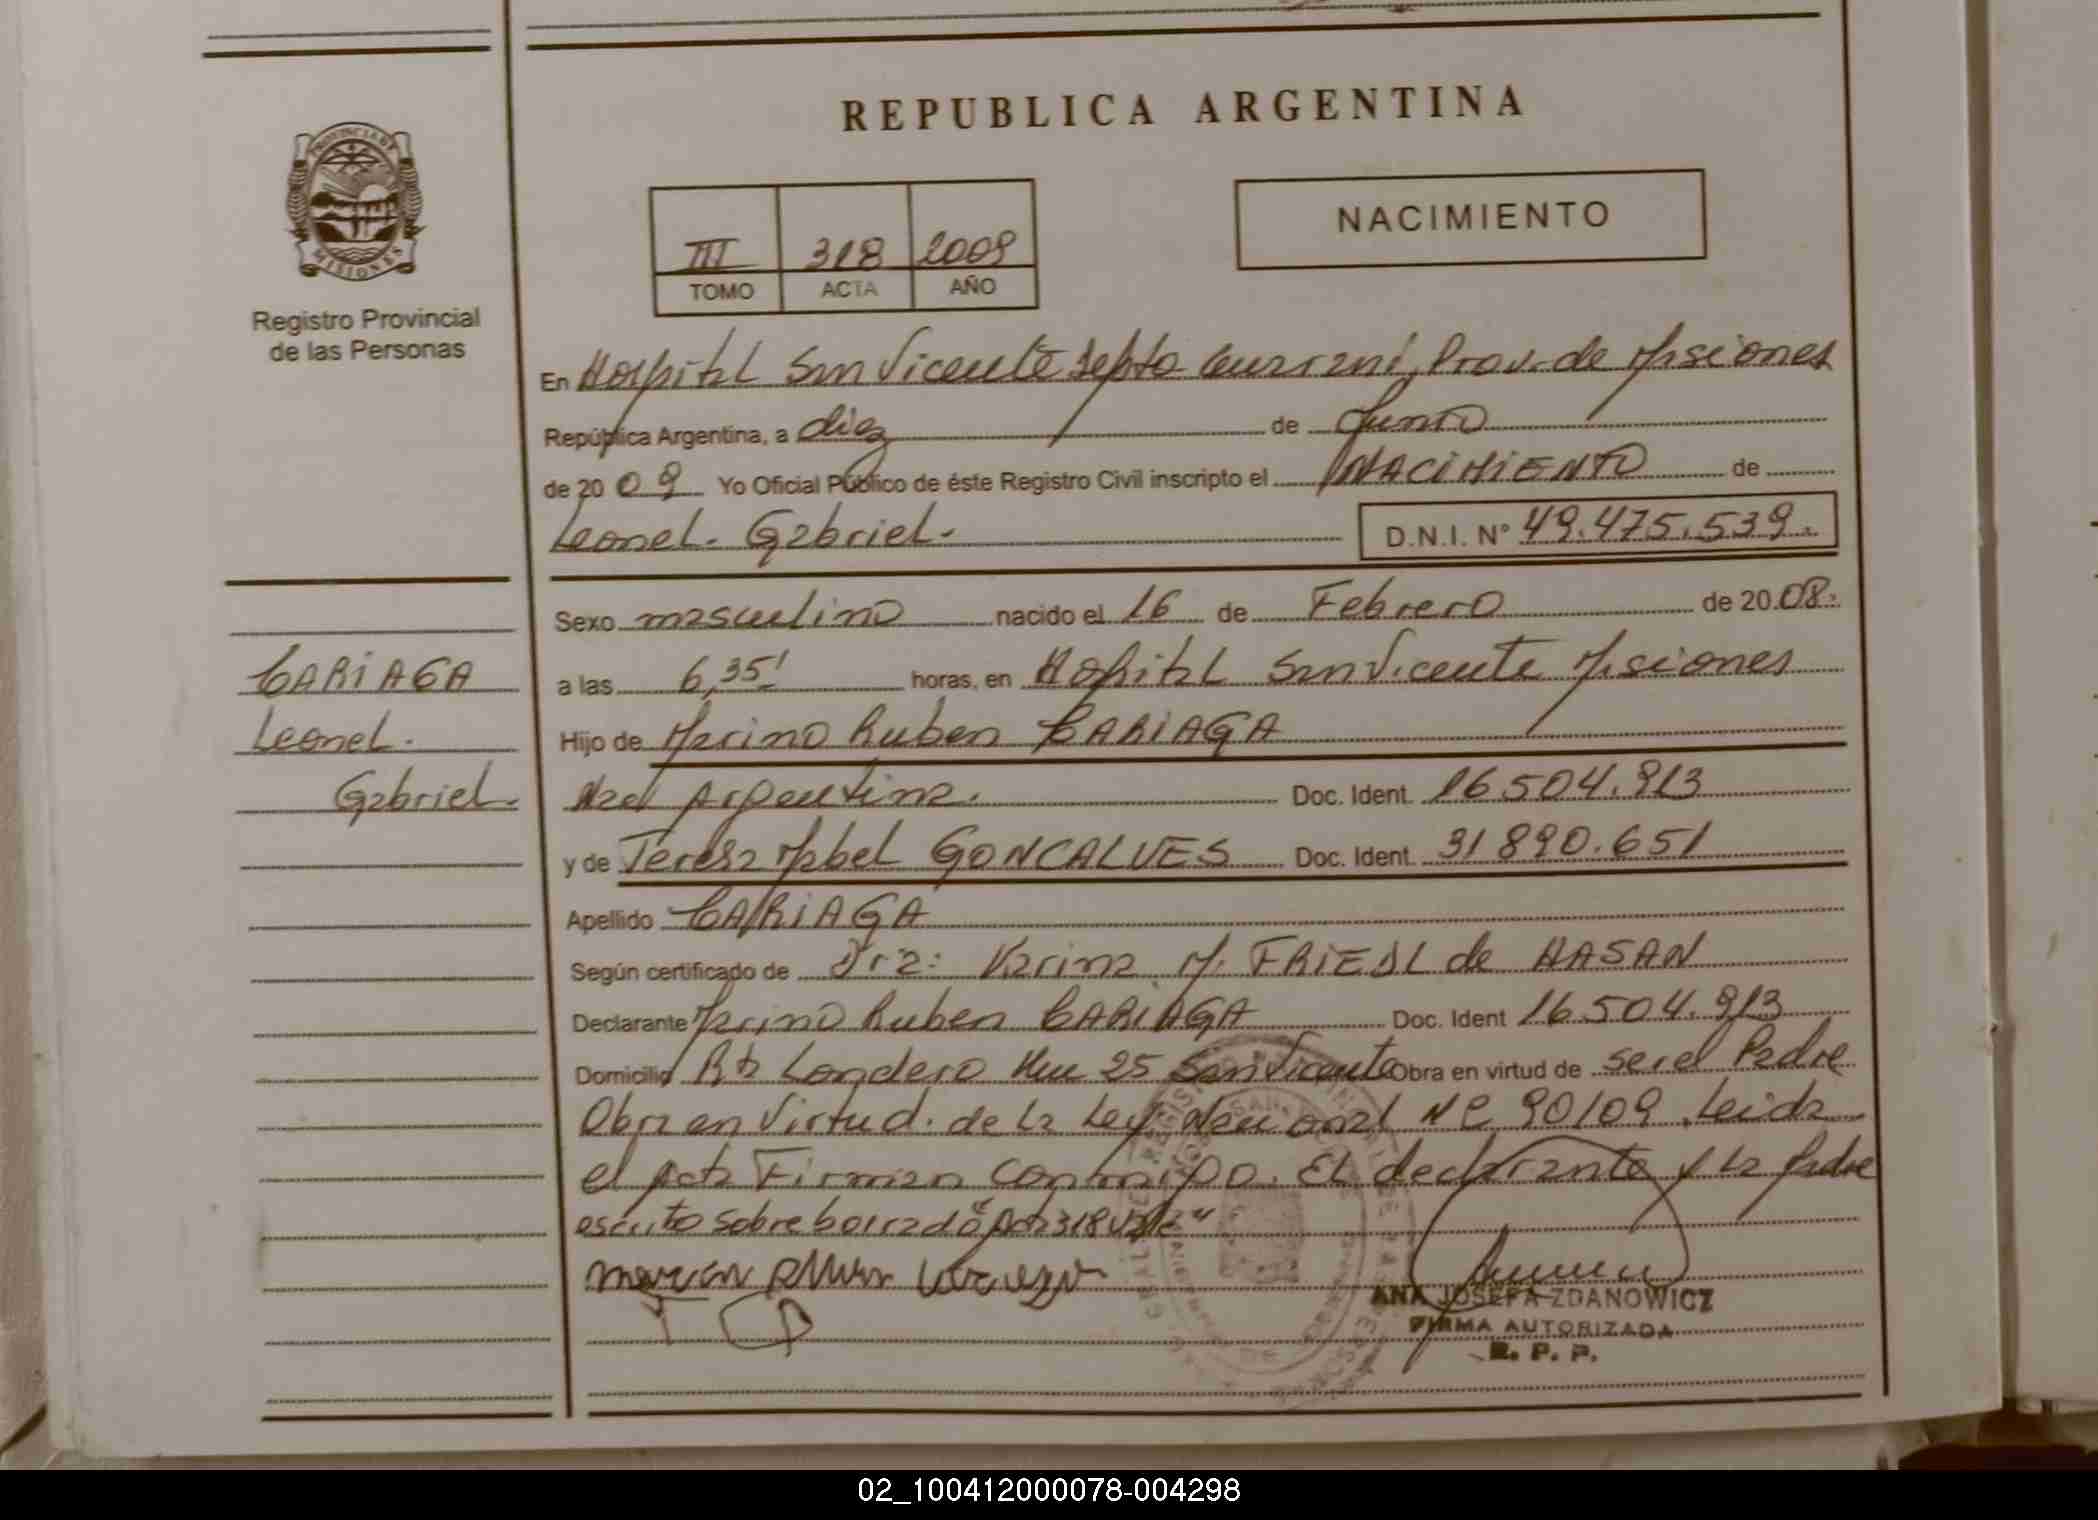 REPUBLICA ARGENTINA
PROVINCIA DE
MISIONES
Registro Provincial
de las Personas
NACIMIENTO
III 318 2009
TOMO ACTA AÑO
En Hospital San Vicente Depto Guarani, Prov. de Misiones
República Argentina, a diez de Junio
de 2009 Yo Oficial Público de éste Registro Civil inscripto el NACIMIENTO de
Leonel. Gabriel. D.N.I. Nº 49.475.539.
Sexo masculino nacido el 16 de Febrero de 2008.
a las 6,35' horas, en Hospital San Vicente Misiones
Hijo de Marino Ruben CARIAGA
Nac Argentina. Doc. Ident. 16504.913
y de Teresa Mabel GONCALVES Doc. Ident. 31890.651
Apellido CARIAGA
Según certificado de Dra: Karina M. FRIEDL de HASAN
Declarante Marino Ruben CARIAGA Doc. Ident 16.504.913
Domicilio Rta Londero Km 25 San Vicente Obra en virtud de ser el Padre
Obra en Virtud. de la Ley Nacional Nº 90/09. Leida
el Acta Firman conmigo. El declarante y la Padre
escrito sobre borrado "Acta 318 vale"
ANA JOSEFA ZDANOWICZ
FIRMA AUTORIZADA
R. P. P.
CARIAGA
Leonel.
Gabriel.
02_100412000078-004298